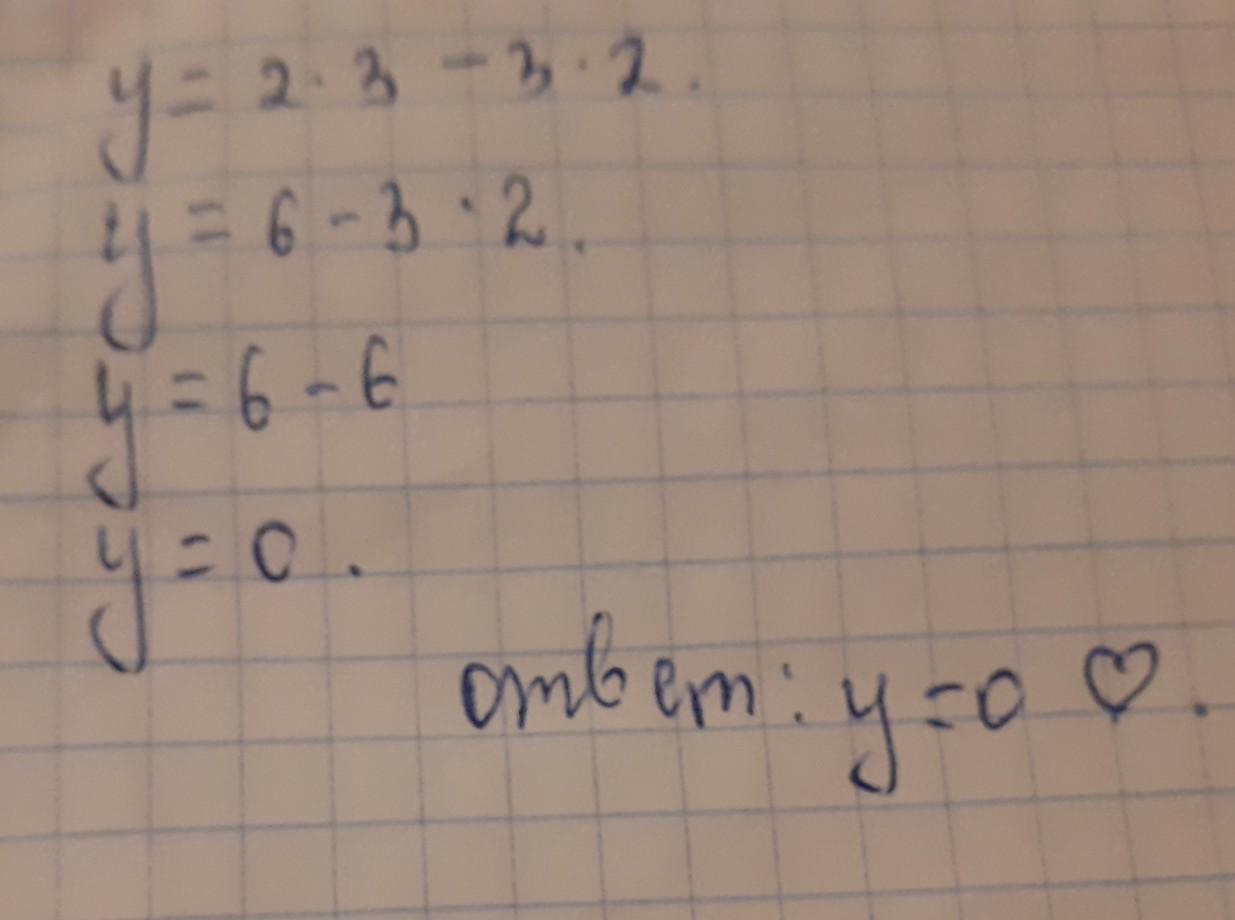 y = 2 · 3 - 3 · 2.
y = 6 - 3 · 2.
y = 6 - 6
y = 0.
ответ: y = 0 ♡.